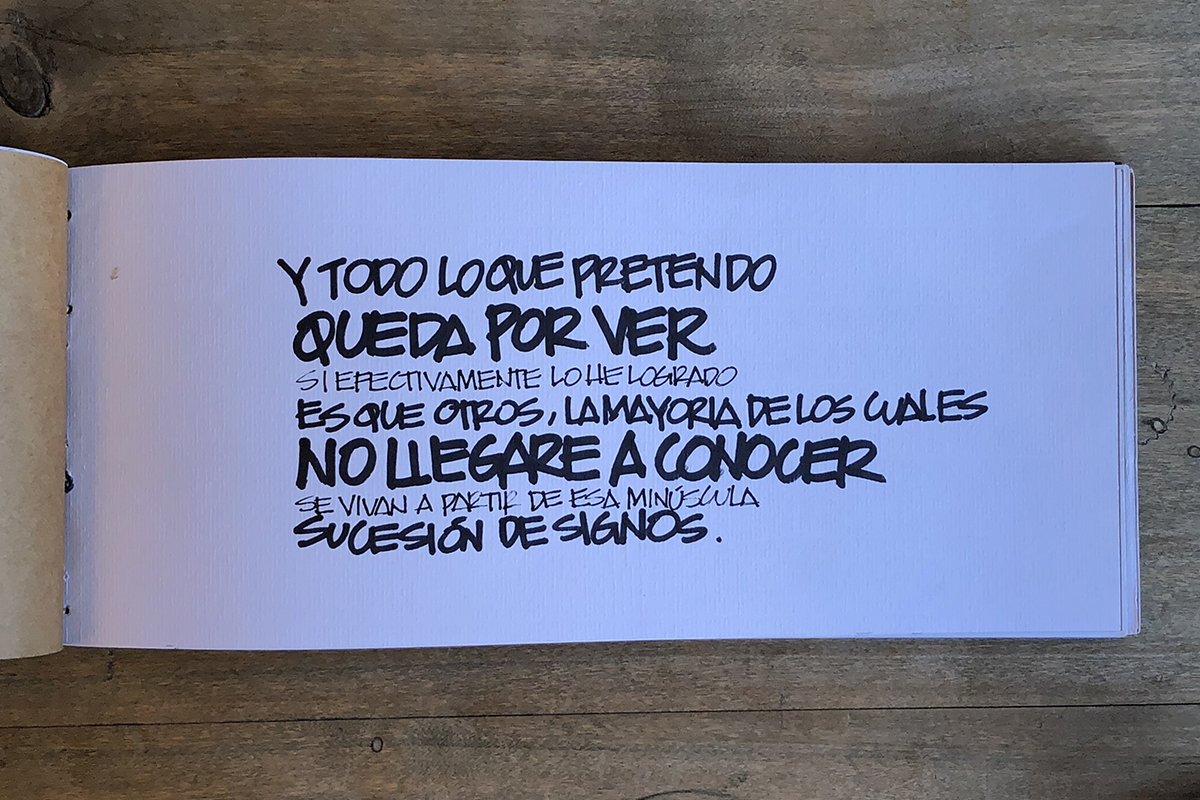 Y TODO LO QUE PRETENDO
QUEDA POR VER
SI EFECTIVAMENTE LO HE LOGRADO
ES QUE OTROS, LA MAYORIA DE LOS CUALES
NO LLEGARE A CONOCER
SE VIVAN A PARTIR DE ESA MINÚSCULA
SUCESIÓN DE SIGNOS.